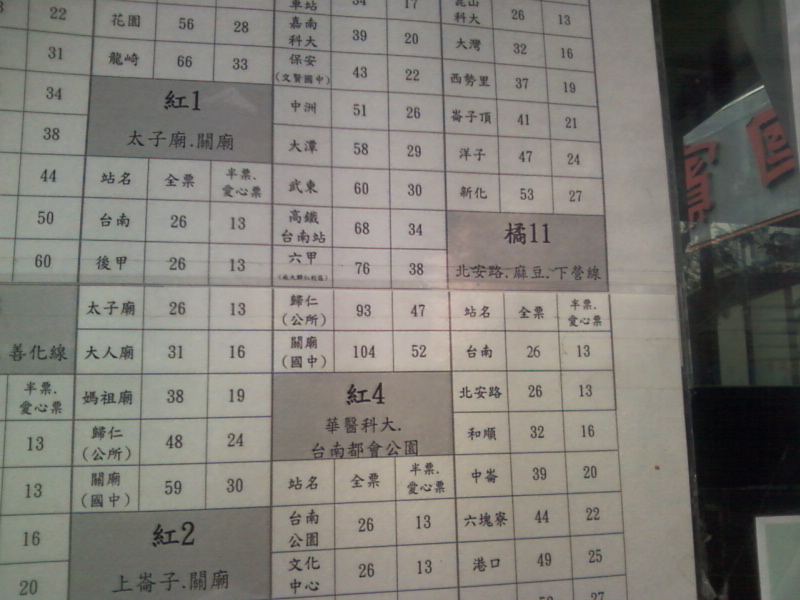 22
31
34
38
44
50
60
善化線
半票.
愛心票
13
13
16
20
花園 56 28
龍崎 66 33
紅1
太子廟.關廟
站名 全票 半票.
愛心票
台南 26 13
後甲 26 13
太子廟 26 13
大人廟 31 16
媽祖廟 38 19
歸仁
(公所) 48 24
關廟
(國中) 59 30
紅2
上崙子.關廟
車站 34 17
嘉南
科大 39 20
保安
(文賢國中) 43 22
中洲 51 26
大潭 58 29
武東 60 30
高鐵
台南站 68 34
六甲 76 38
歸仁
(公所) 93 47
關廟
(國中) 104 52
紅4
華醫科大.
台南都會公園
站名 全票 半票.
愛心票
台南
公園 26 13
文化
中心 26 13
崑山
科大 26 13
大灣 32 16
西勢里 37 19
崙子頂 41 21
洋子 47 24
新化 53 27
橘11
北安路.麻豆.下營線
站名 全票 半票.
愛心票
台南 26 13
北安路 26 13
和順 32 16
中崙 39 20
六塊寮 44 22
港口 49 25
27
賓